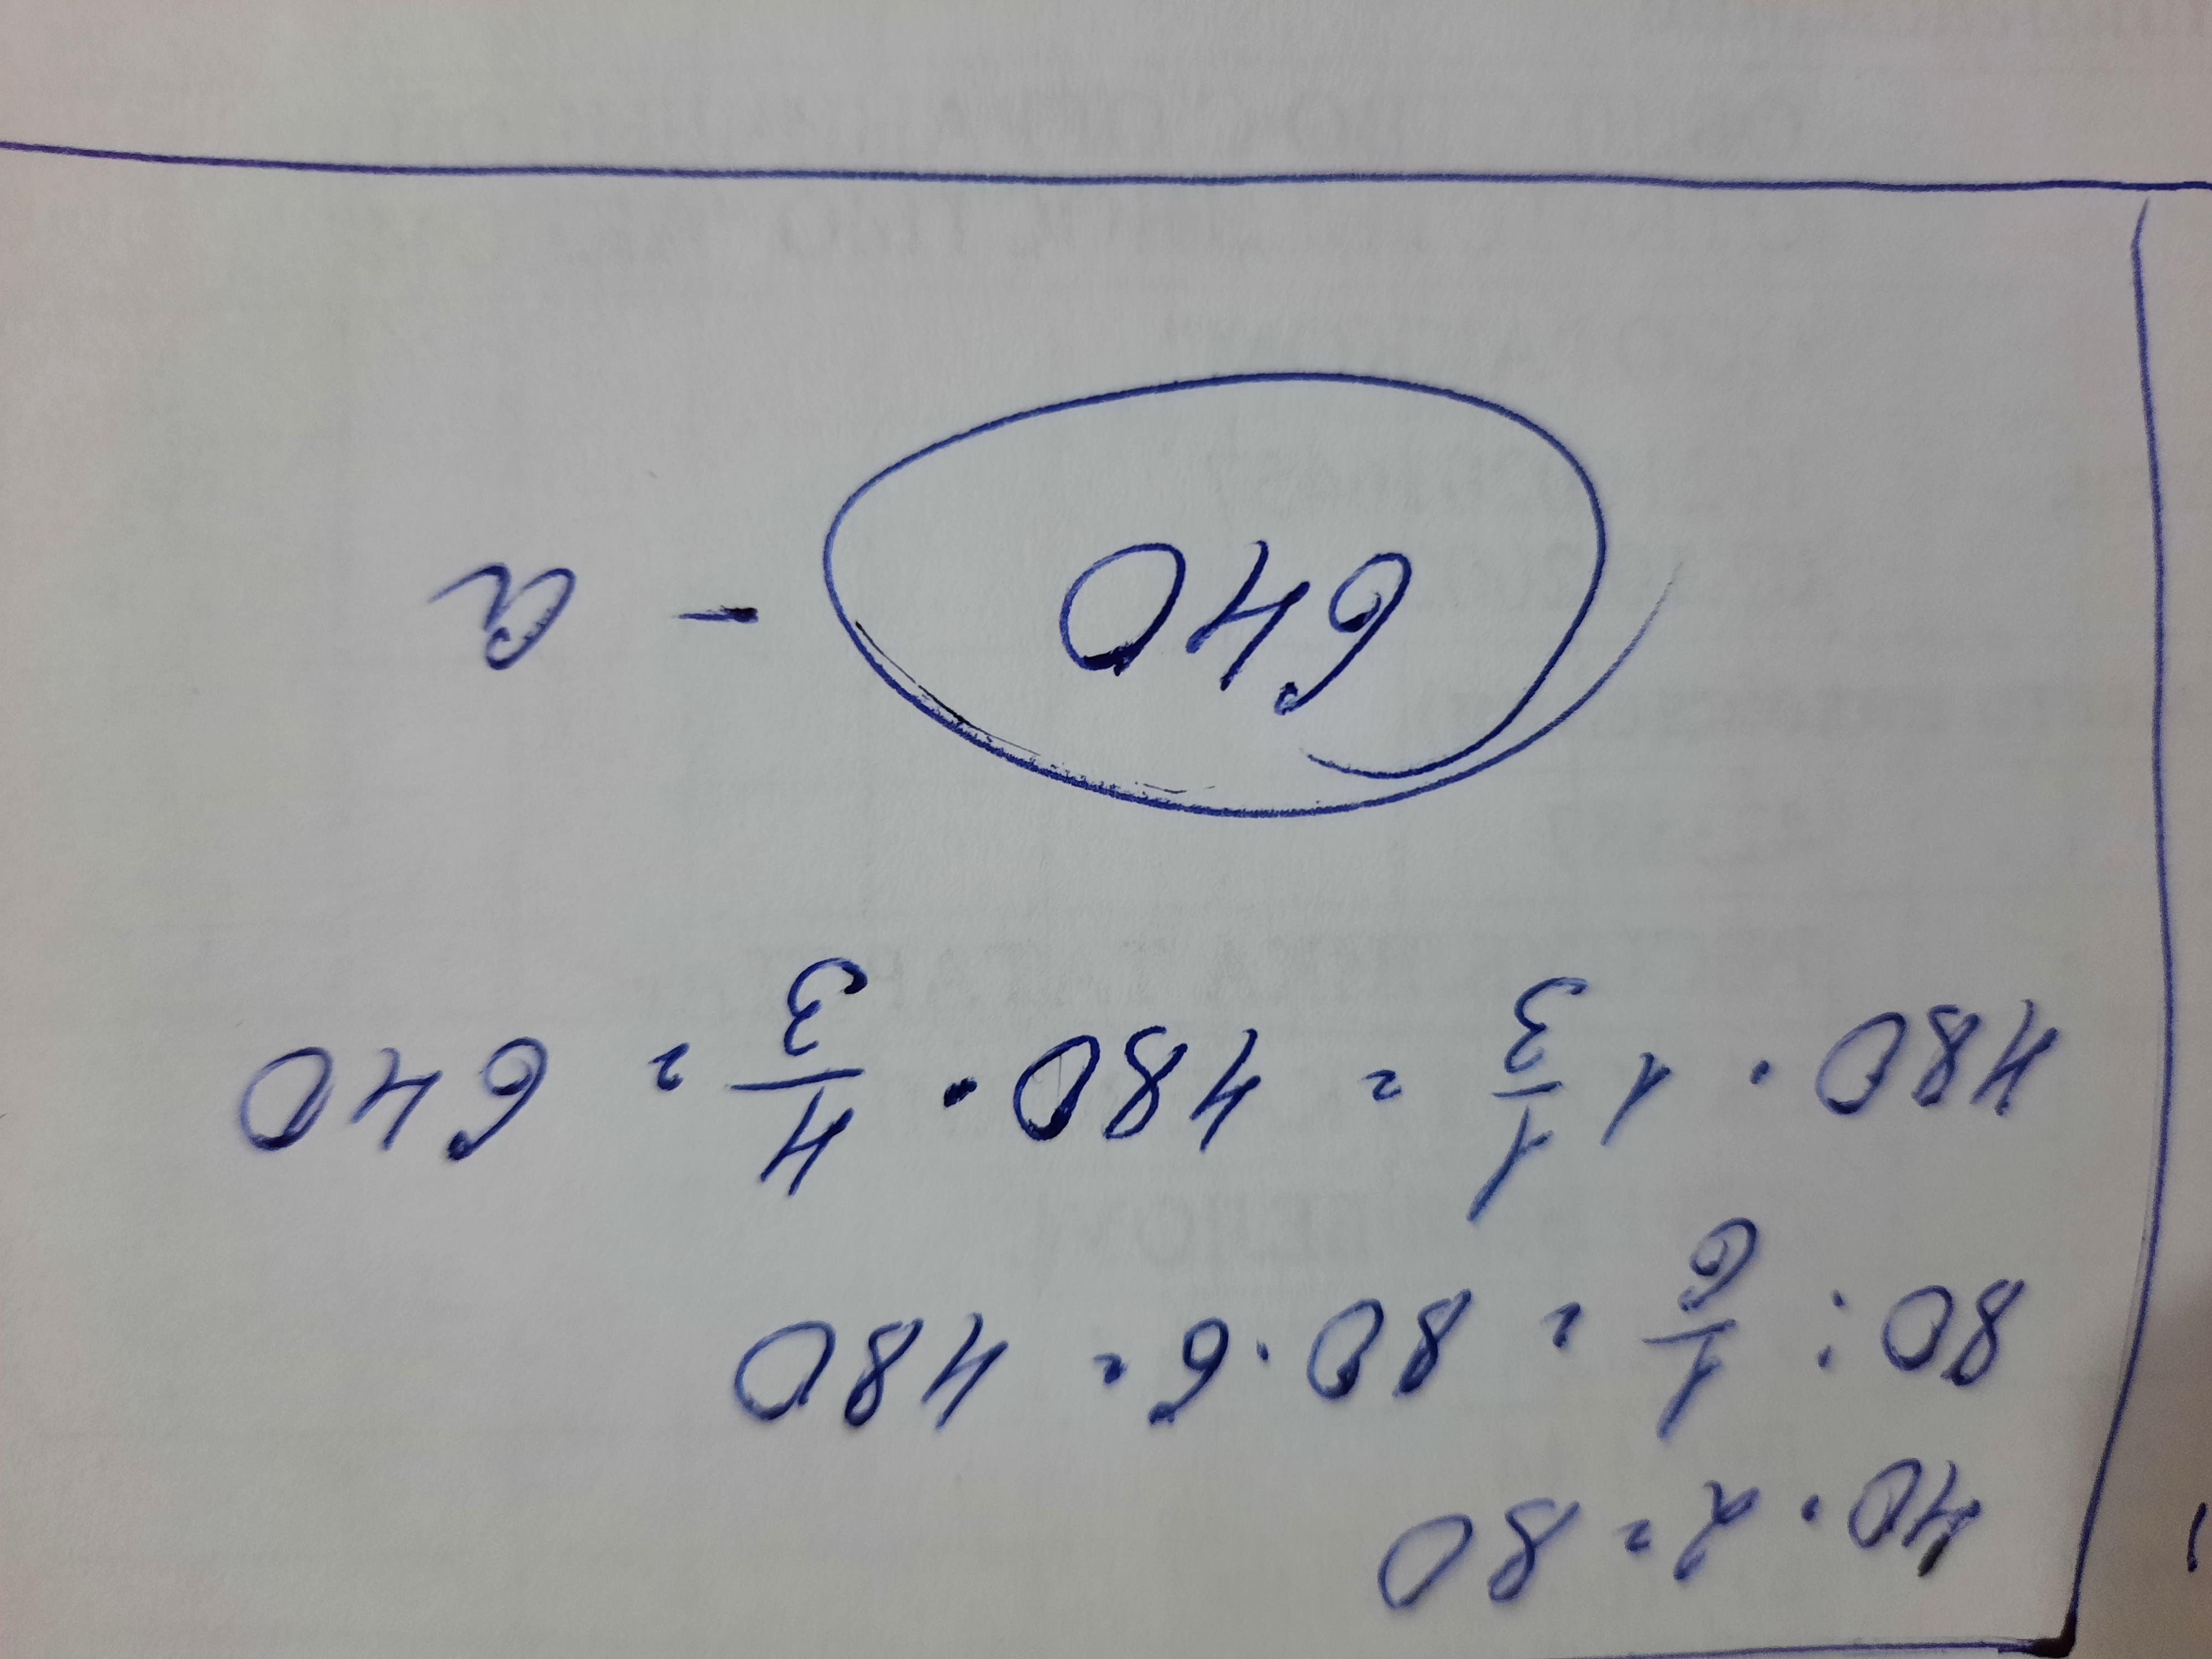 40 · 2 = 80
80 : 1/6 = 80 · 6 = 480
480 · 1 1/3 = 480 · 4/3 = 640
640 - a